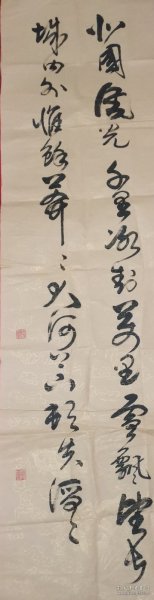 北国风光千里冰封万里雪飘望长
城内外惟余莽〻大河上下顿失滔〻